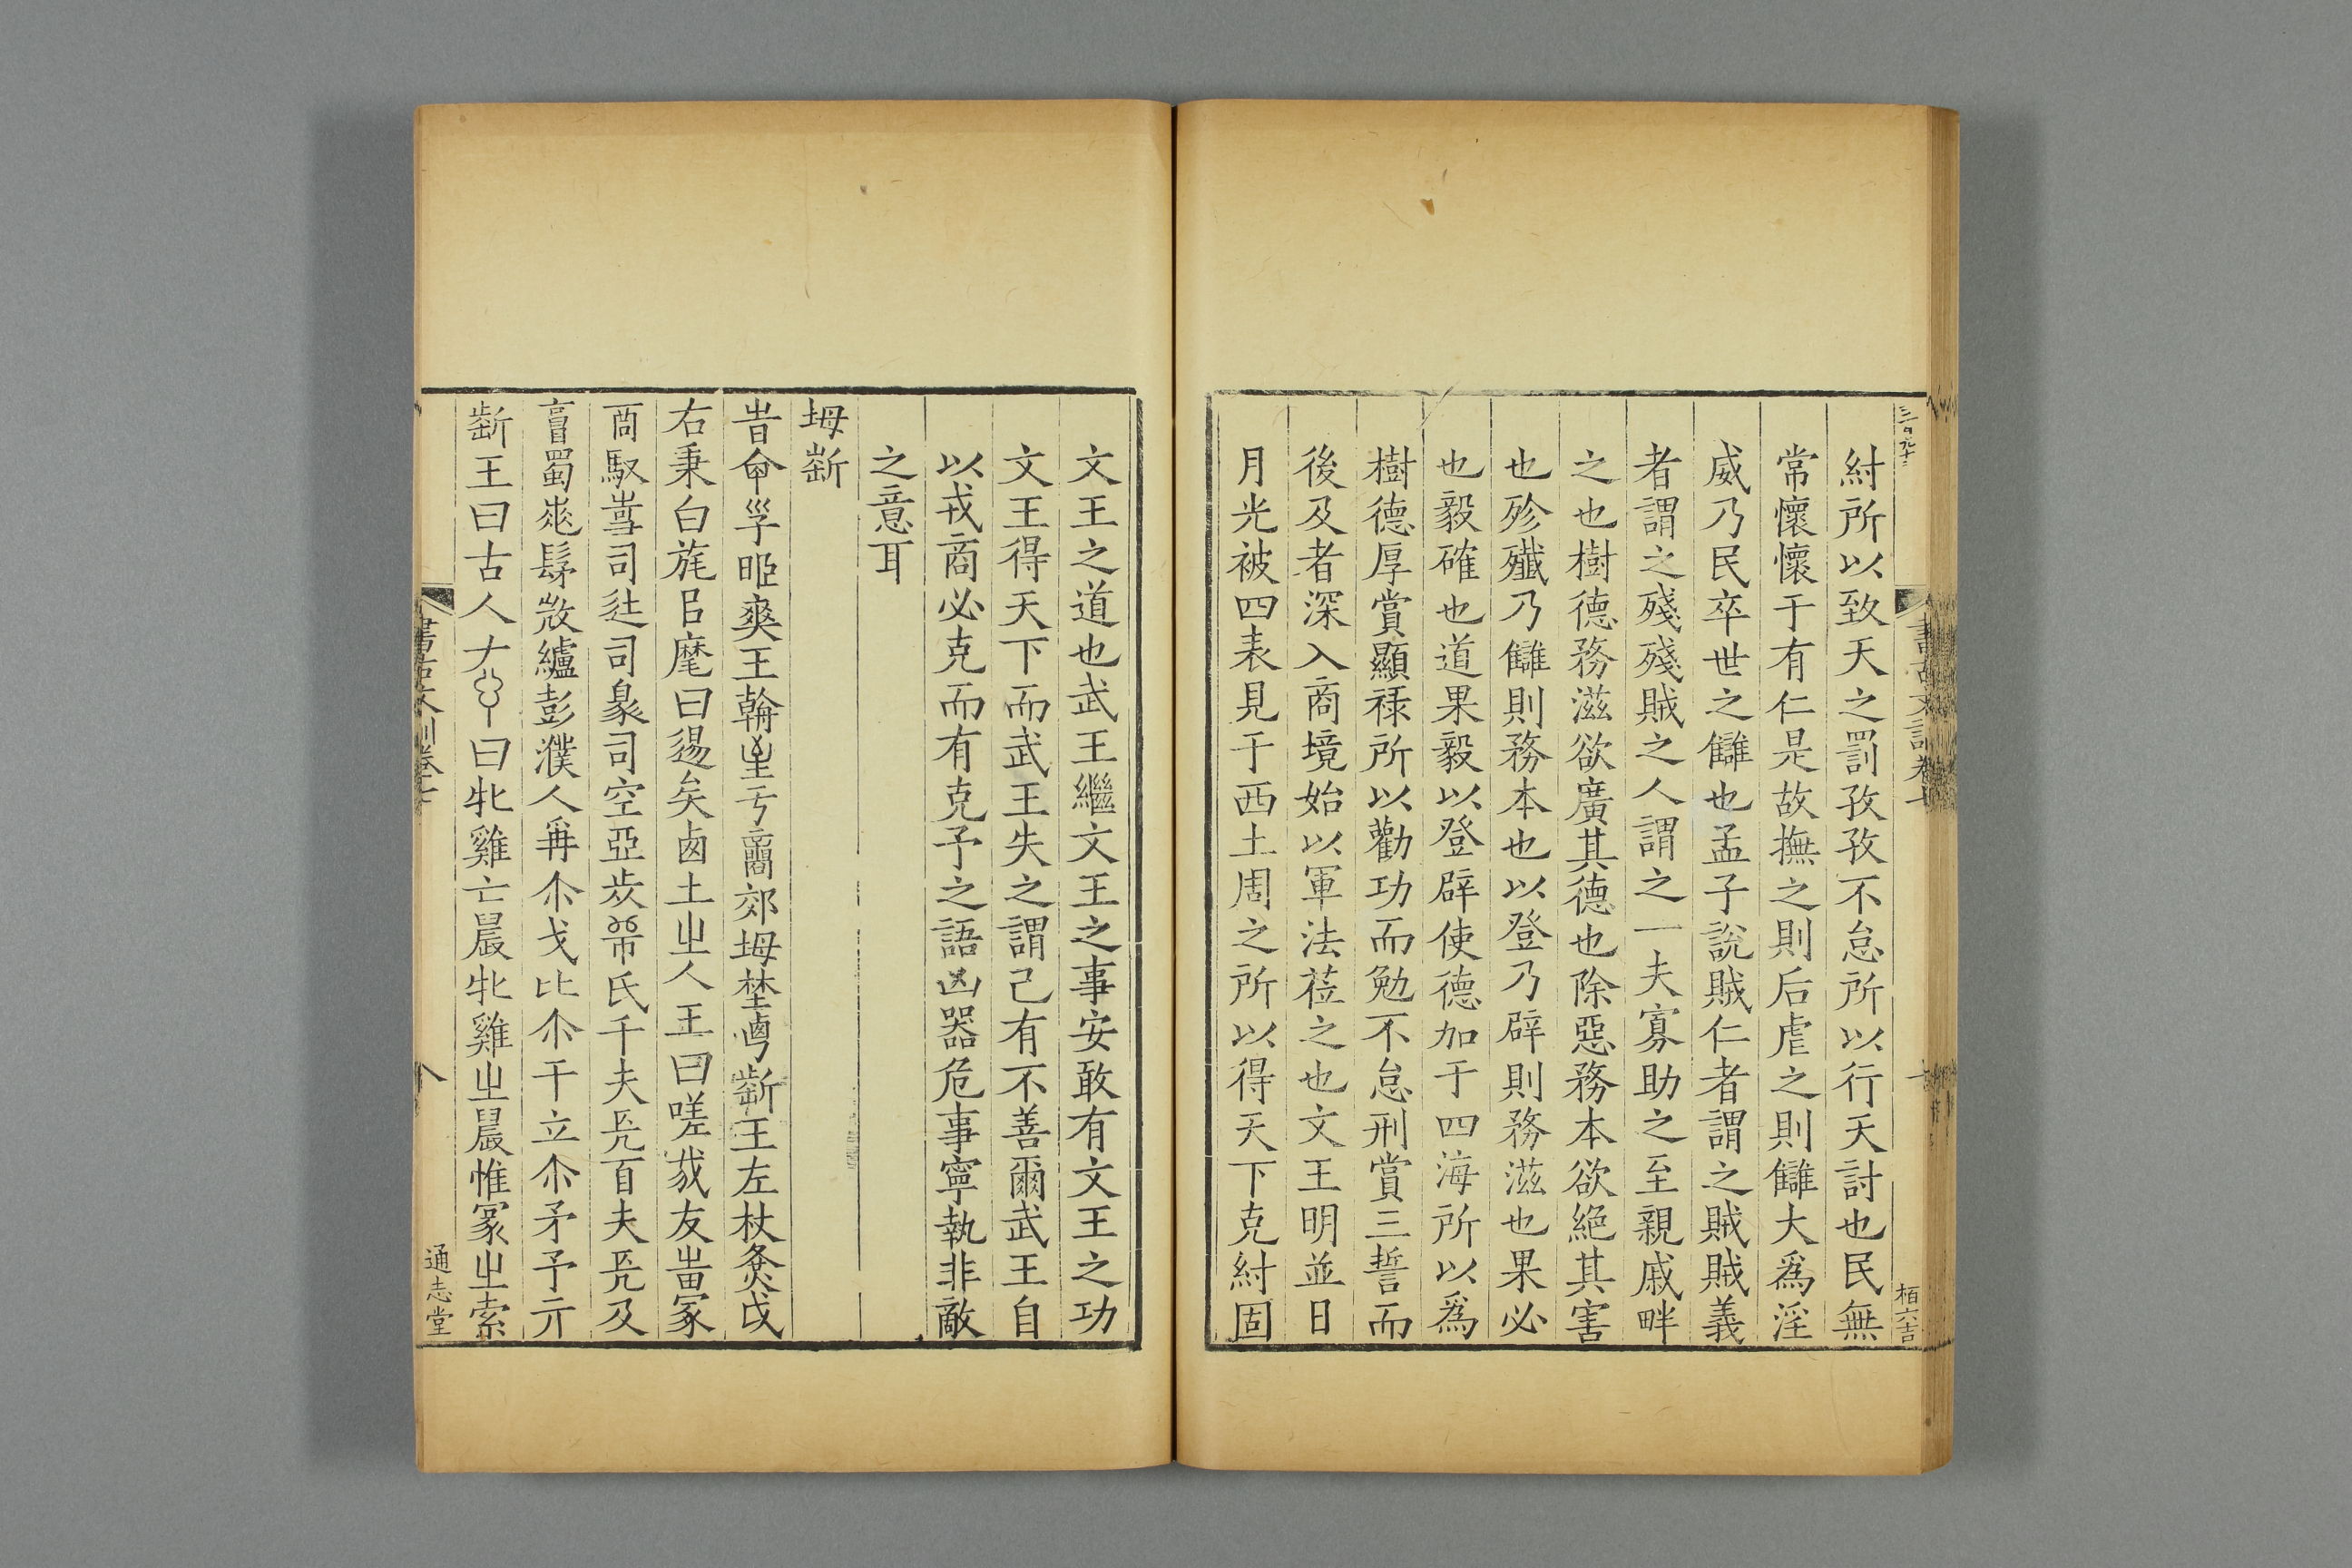 紂所以致天之罰孜孜不怠所以行天討也民無
常懷懷于有仁是故撫之則后虐之則讎大爲淫
威乃民卒世之讎也孟子說賊仁者謂之賊賊義
者謂之殘殘賊之人謂之一夫寡助之至親戚畔
之也樹德務滋欲廣其德也除惡務本欲絕其害
也殄殲乃讎則務本也以登乃辟則務滋也果必
也毅確也道果毅以登辟使德加于四海所以爲
樹德厚賞顯祿所以勸功而勉不怠刑賞三誓而
後及者深入商境始以軍法莅之也文王明並日
月光被四表見于西土周之所以得天下克紂固
文王之道也武王繼文王之事安敢有文王之功
文王得天下而武王失之謂己有不善爾武王自
以戎商必克而有克予之語凶器危事寧執非敵
之意耳
坶斮
右秉白旄㠯麾曰逷矣卤土㞢人王曰嗟㦲友
司空亞
氏千夫百夫及
蜀髳纑彭濮人爯尒戈比尒干立尒矛予亓
王曰古人ナ曰牝雞亡晨牝雞㞢晨惟冡㞢索
通志堂